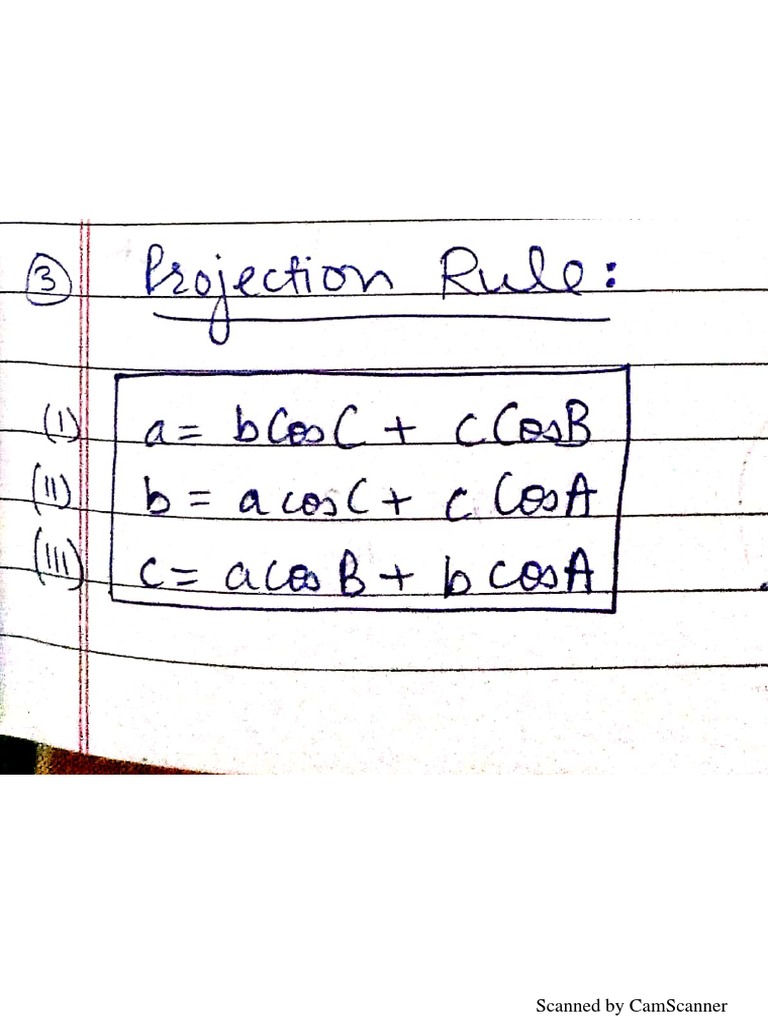 ③ Projection Rule:
(I) a = b Cos C + c Cos B
(II) b = a cos C + c Cos A
(III) c = a cos B + b cos A
Scanned by CamScanner